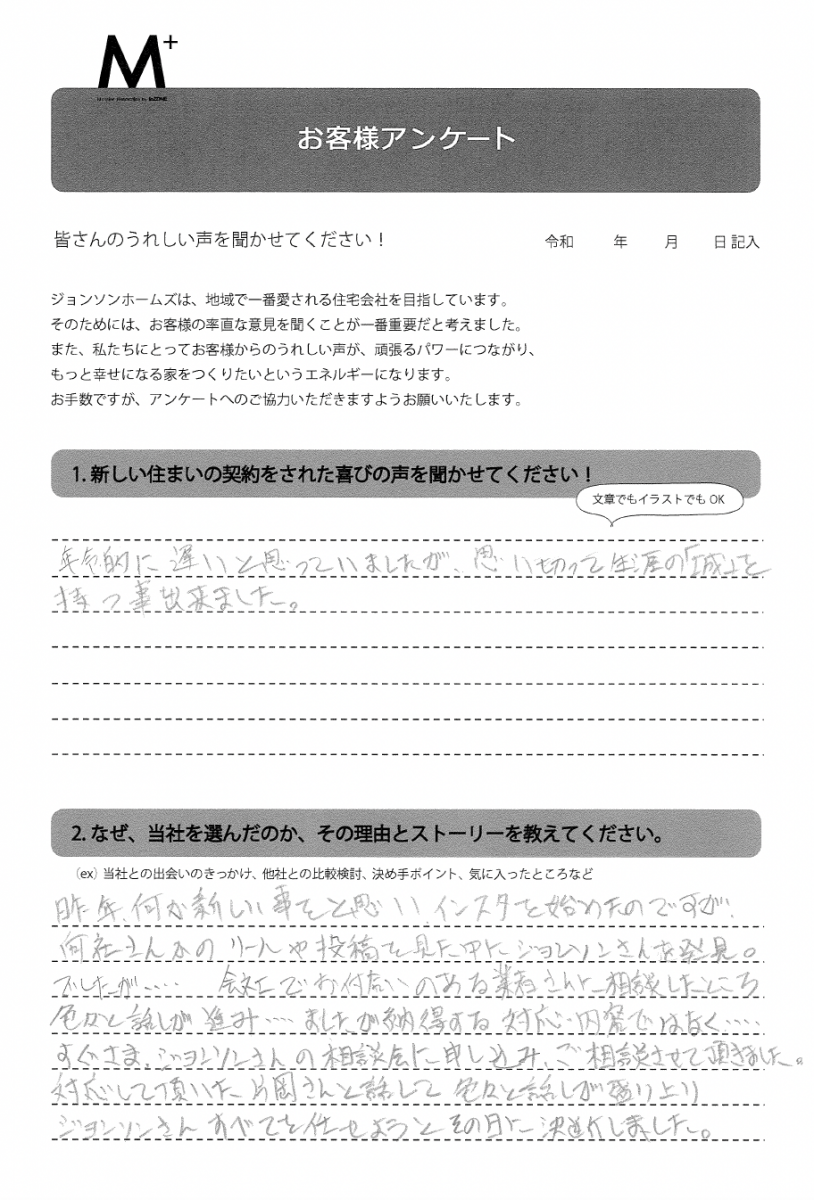 M+
お客様アンケート
皆さんのうれしい声を聞かせてください！
令和 年 月 日 記入
ジョンソンホームズは、地域で一番愛される住宅会社を目指しています。
そのためには、お客様の率直な意見を聞くことが一番重要だと考えました。
また、私たちにとってお客様からのうれしい声が、頑張るパワーにつながり、
もっと幸せになる家をつくりたいというエネルギーになります。
お手数ですが、アンケートへのご協力いただきますようお願いいたします。
1. 新しい住まいの契約をされた喜びの声を聞かせてください！
文章でもイラストでも OK
年令的に遅いと思っていましたが、思い切って生涯の「城」を
持つ事出来ました。
2. なぜ、当社を選んだのか、その理由とストーリーを教えてください。
（ex）当社との出会いのきっかけ、他社との比較検討、決め手ポイント、気に入ったところなど
昨年、何か新しい事をと思い、インスタを始めたのですが、
何社さんかのリールや投稿を見た中にジョンソンさんを発見。
でしたが‥‥ 会社でお付合いのある業者さんに相談したところ
色々と話しが進み‥‥ましたが納得する対応・内容ではなく‥‥
すぐさま、ジョンソンさんの相談会に申し込み、ご相談させて頂きました。
対応して頂いた片岡さんと話して色々と話しが盛り上り
ジョンソンさんすべてを任せようとその日に決断しました。